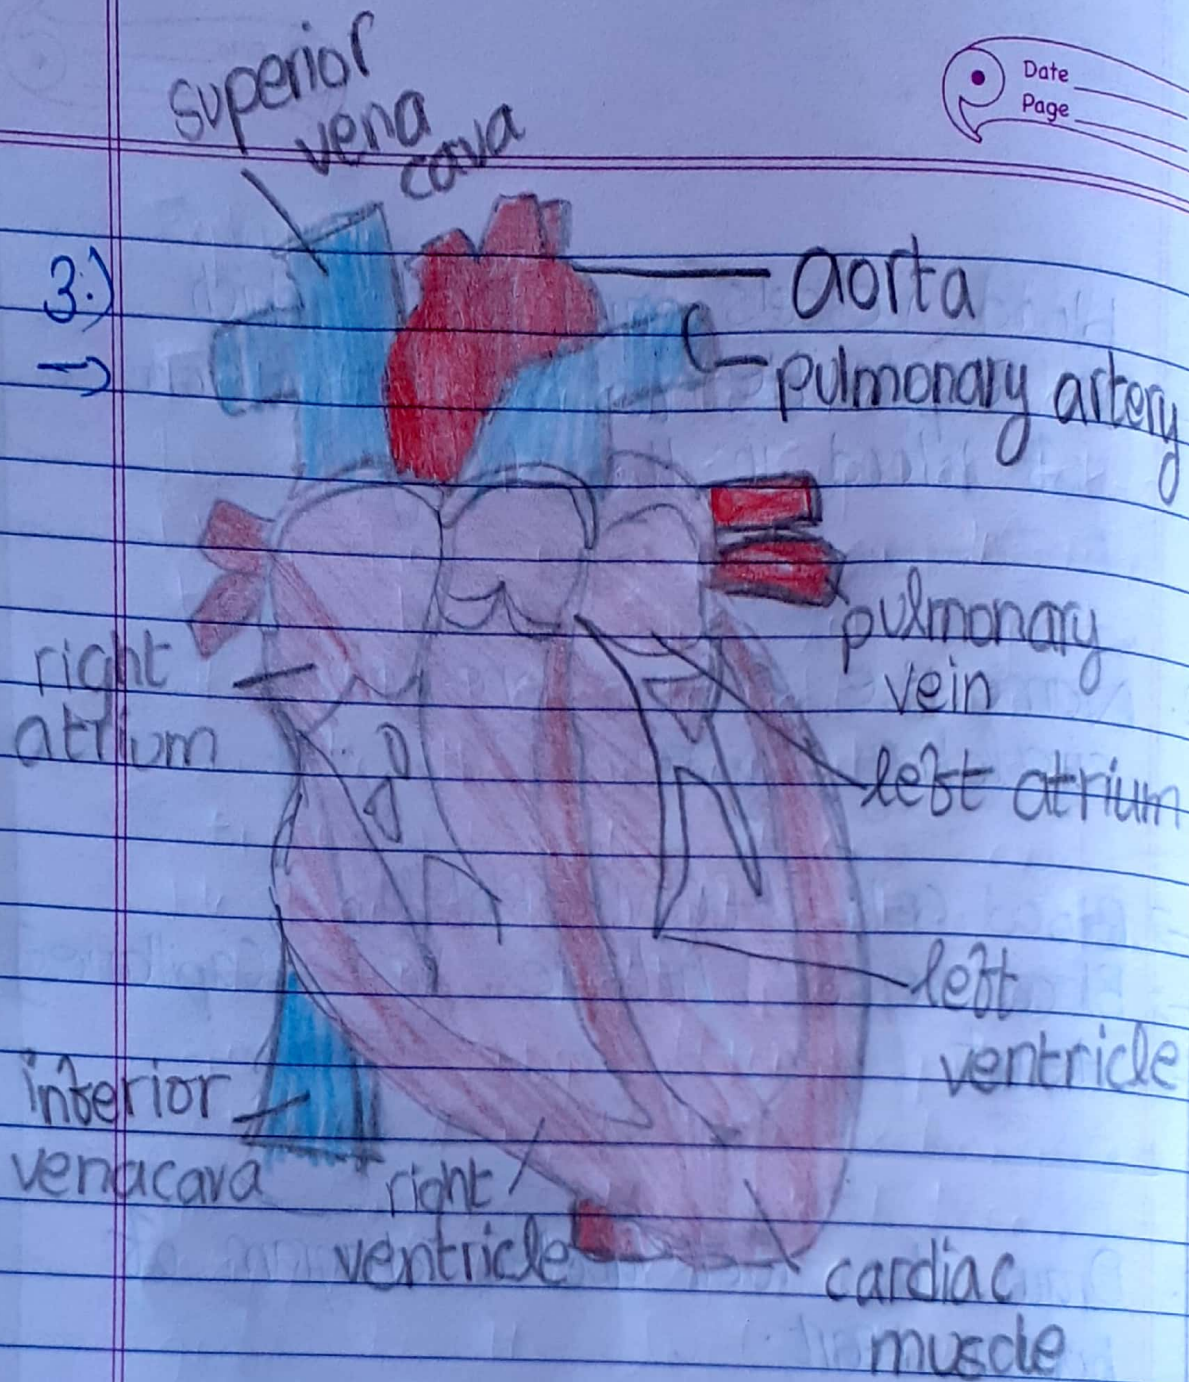 Date
Page
superior
vena
cava
3.)
→
aorta
pulmonary artery
pulmonary
vein
right
atrium
left atrium
left
ventricle
inferior
venacava
right
ventricle
cardiac
muscle